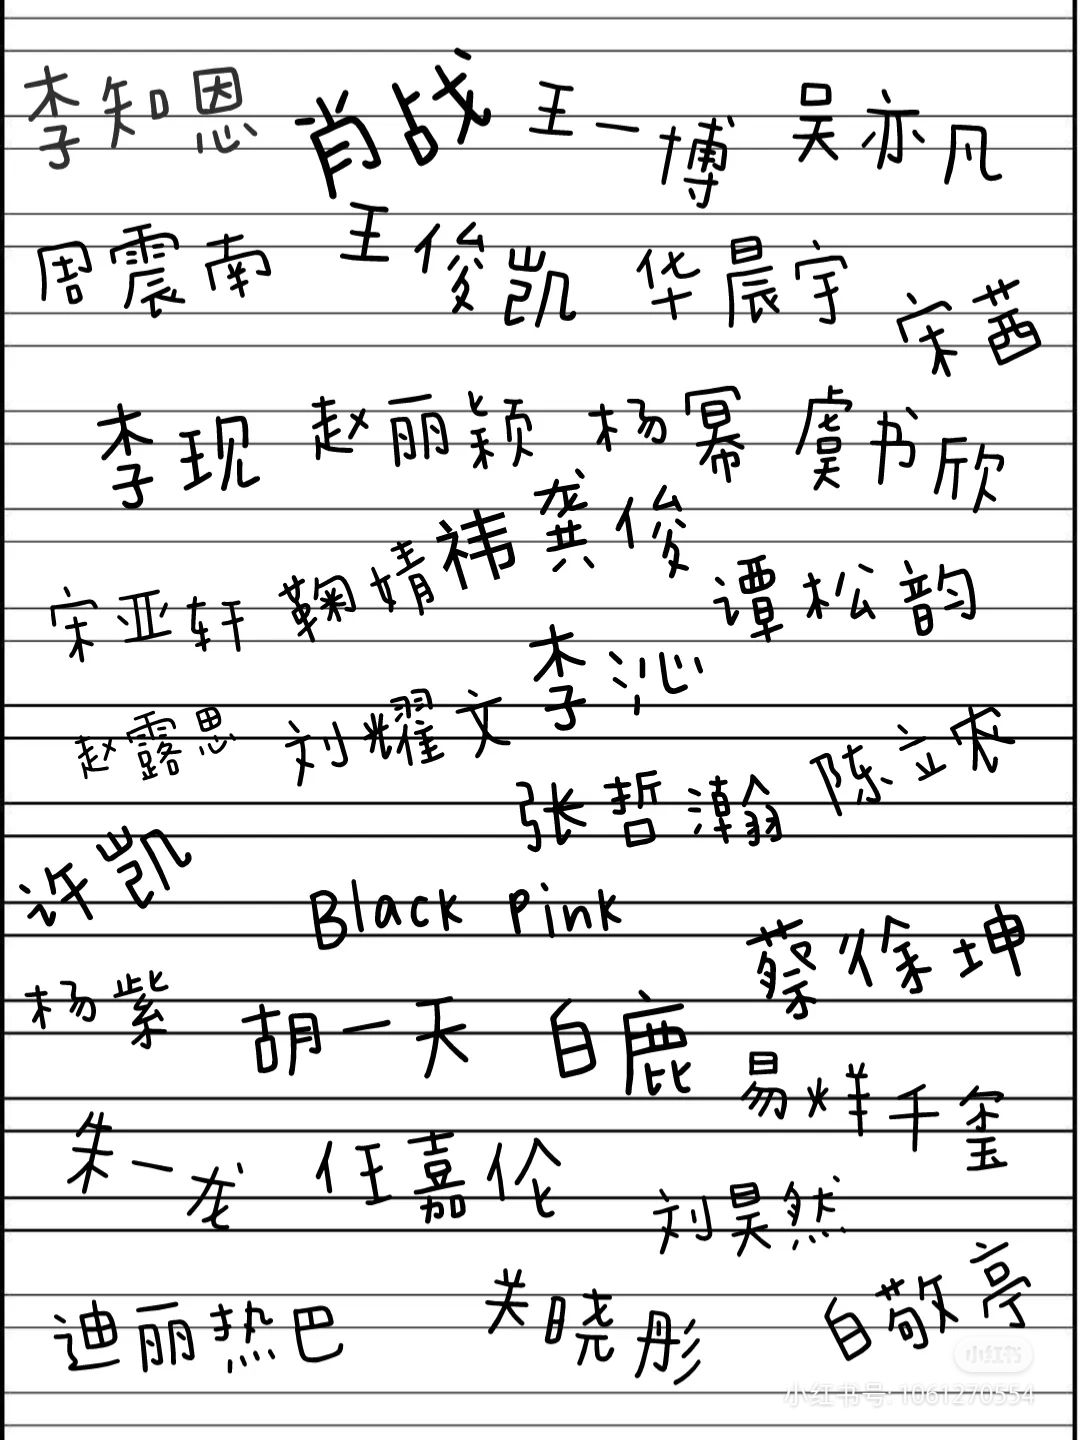 李知恩 肖战 王一博 吴亦凡
周震南 王俊凯 华晨宇 宋茜
李现 赵丽颖 杨幂 虞书欣
宋亚轩 鞠婧祎 龚俊 谭松韵
赵露思 刘耀文 李沁
张哲瀚 陈立农
许凯 Black Pink 蔡徐坤
杨紫 胡一天 白鹿 易烊千玺
朱一龙 任嘉伦 刘昊然
迪丽热巴 关晓彤 白敬亭
小红书
小红书号: 1061270554